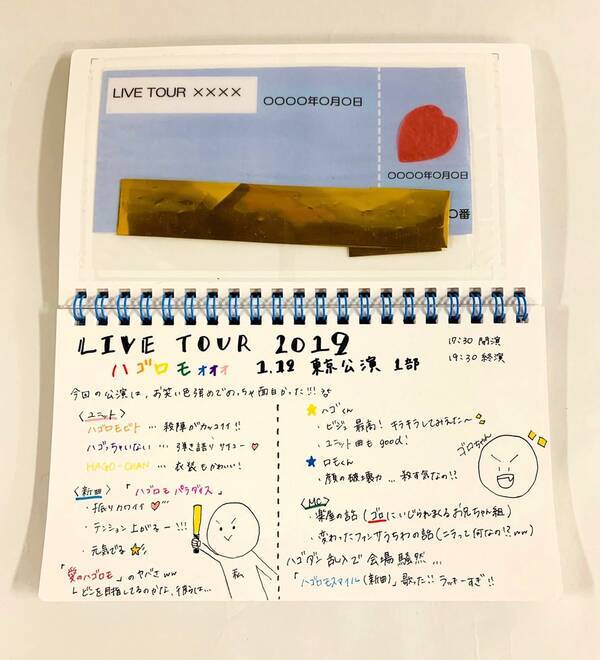 LIVE TOUR ××××
〇〇〇〇年〇月〇日
〇〇〇〇年〇月〇日
〇番
LIVE TOUR 2019
17:30 開演
19:30 終演
ハゴロモォォォ 1.12 東京公演 1部
今回の公演は、お笑い色強めでめっちゃ面白かった!!!
〈ユニット〉
ハゴロモビト … 殺陣がカッコイイ!!
ハゴっちゃいない … 弾き語り サイコー
HAGO-CHAN … 衣装もかわいい!
〈新曲〉「ハゴロモ パラダイス」
・振りカワイイ
・テンション上がるー!!!
・元気でる
「愛のハゴロモ」のヤバさww
私
ハゴくん
・ビジュ最高! キラキラしてみえた〜
・ユニット曲も good!
ロモくん
・顔の破壊力 … 殺す気なの!?
ゴロちゃん
〈MC〉
・楽屋の話 (ゴロにいじられまくるお兄ちゃん組)
・変わったファンサうちわの話 (ニラって何なの!? ww)
ハゴダン乱入で会場騒然 …
「ハゴロモスマイル (新曲)」歌った!! ラッキーすぎ!!